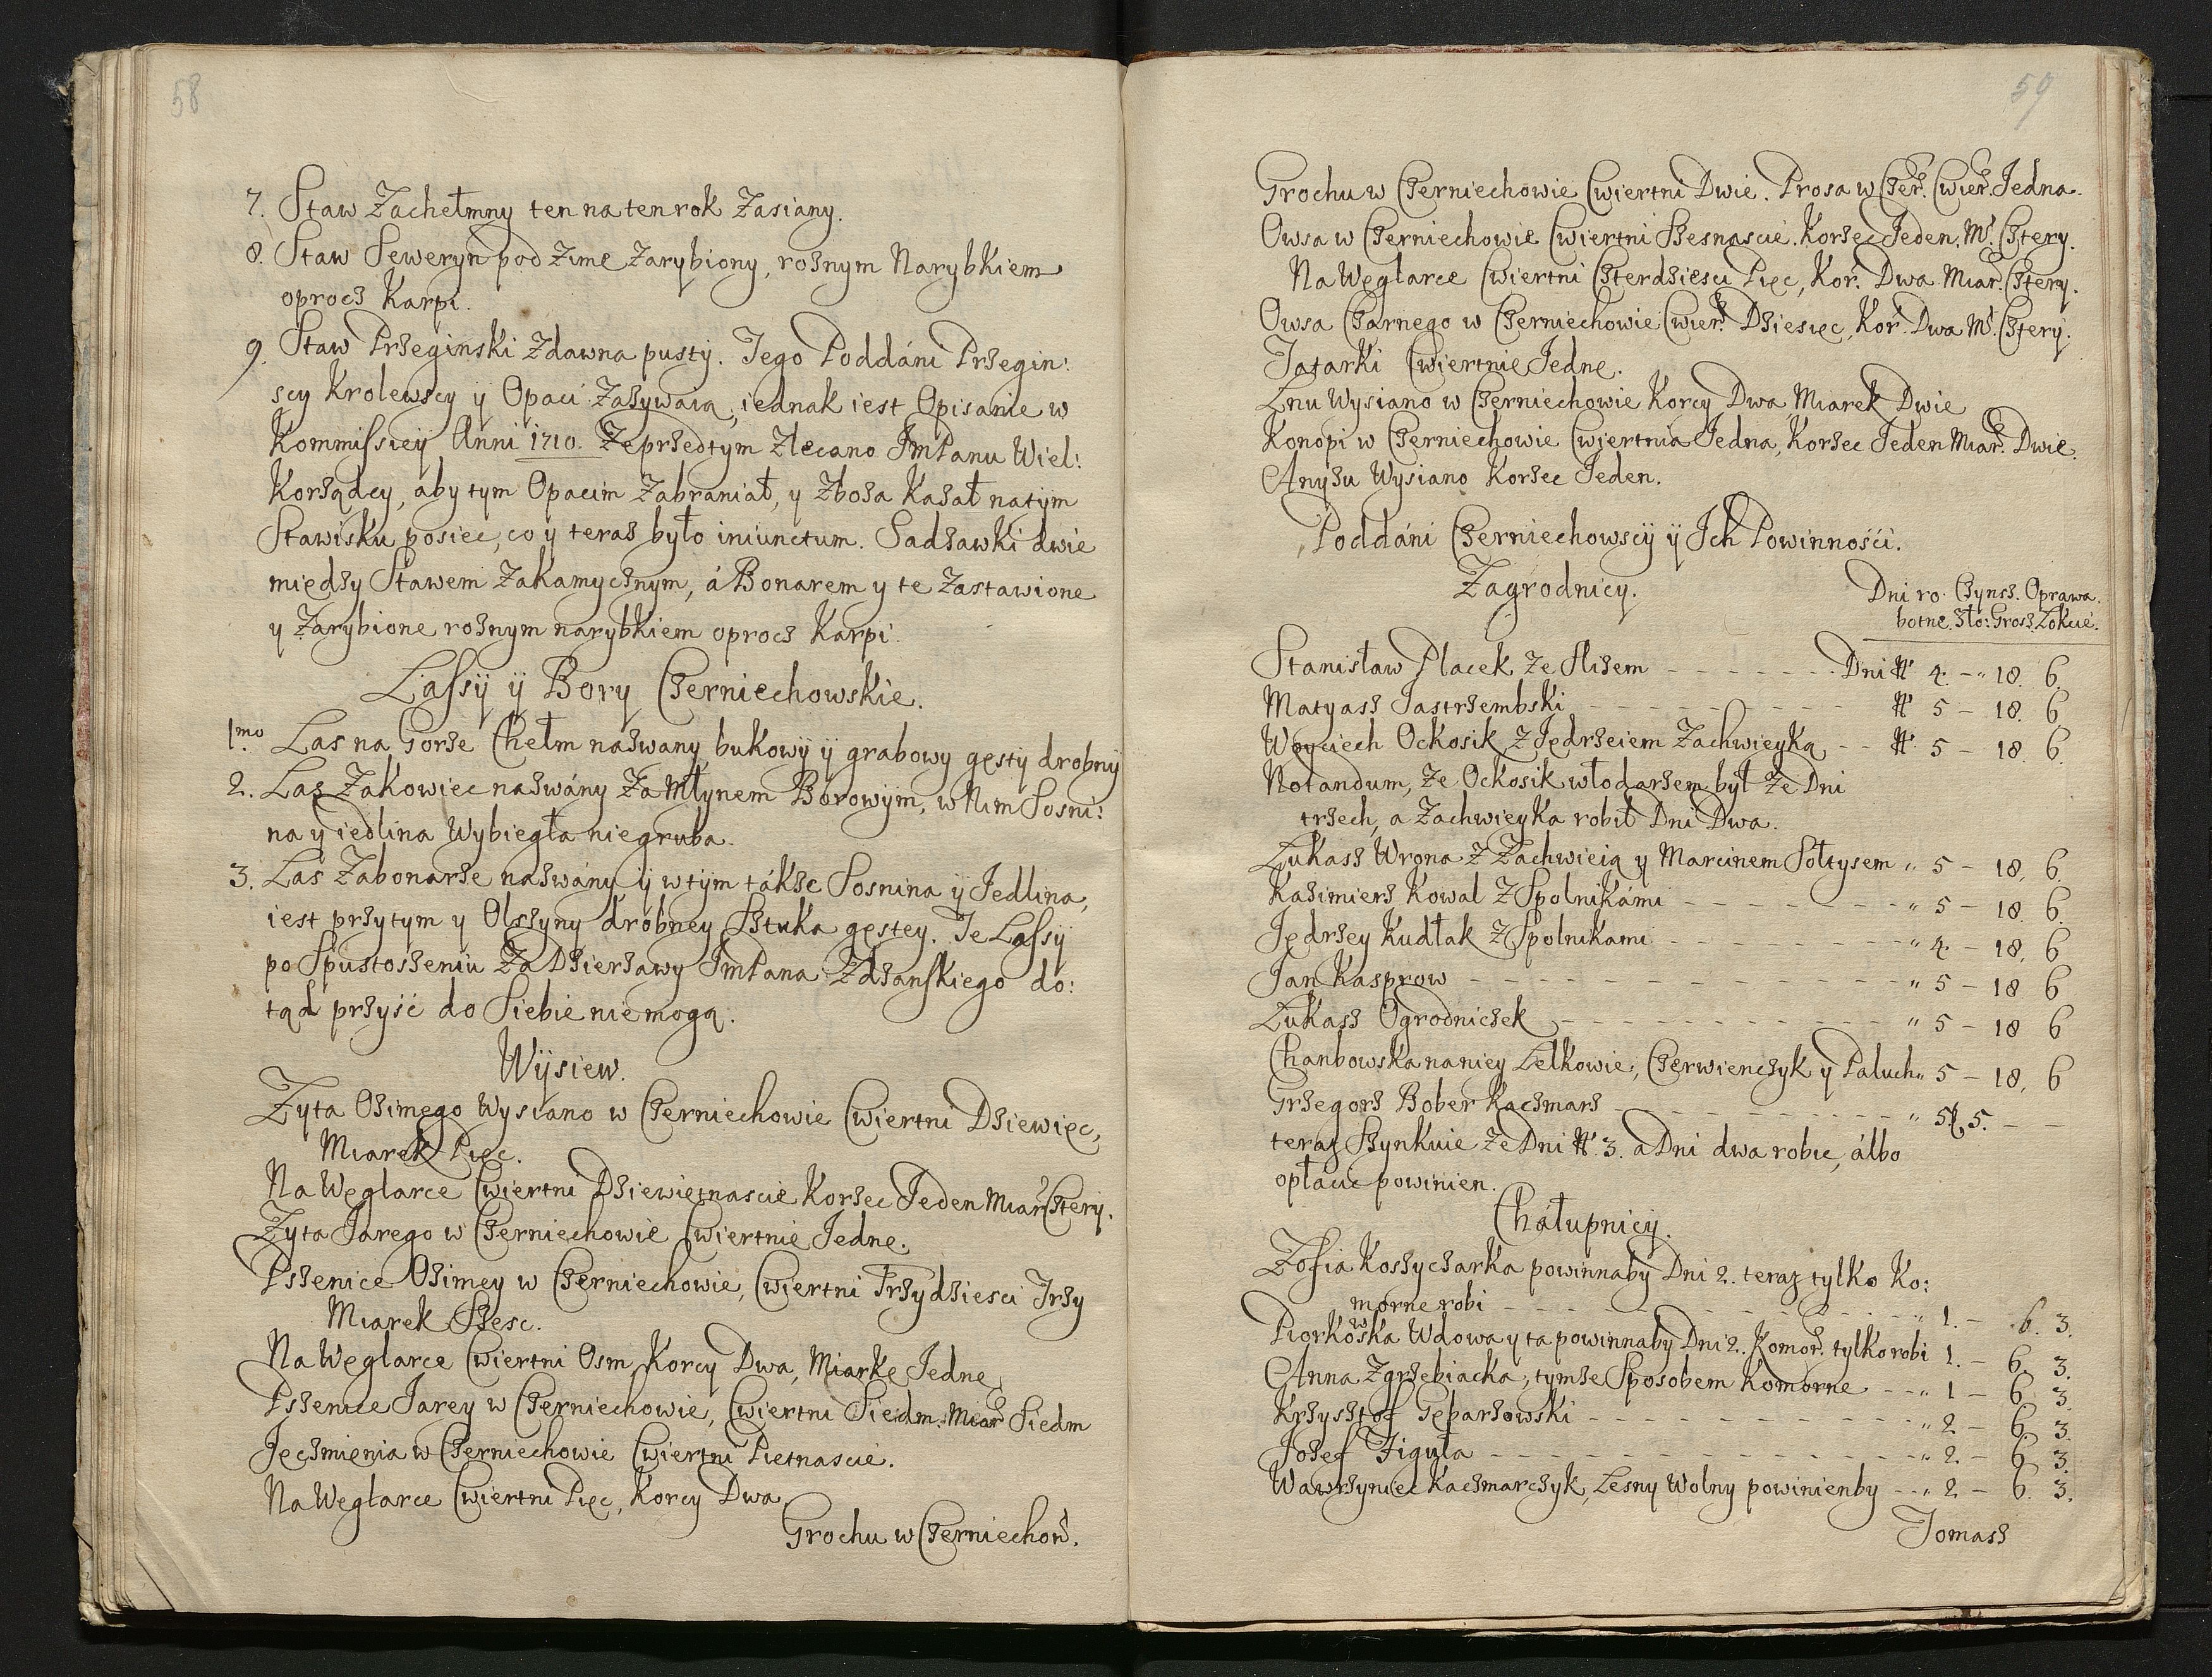 58
7. Staw Zachełmny ten na ten rok Zasiany.
8. Staw Seweryn pod Zime Zarybiony, rożnym Narybkiem
oprocz Karpi.
9. Staw Przeginski Zdawna pusty. Jego Poddáni Przegin:
scy Krolewscy y Opaci Zażywaią, iednak iest Opisanie w
Kommissicyi Anni 1710. Ze przedtym Zlecano JmPanu Wiel:
Korządcy, aby tym Opacim Zabraniał, y Zboża Kazał na tym
Stawisku posiec, co y teraz było iniunctum. Sadzawki dwie
między Stawem Zakamycznym, á Bonarem y te Zastawione
y Zarybione rożnym narybkiem oprocz Karpi.
Lassy y Bory Czerniechowskie.
1mo Las na Gorze Chełm nazwany bukowy y grabowy gęsty drobny
2. Las Zakowiec nazwány Za Młynem Borowym, w Nim Sosni:
na y iedlina Wybiegła niegruba.
3. Las Zabonarze nazwány y w tym tákze Sosnina y Jedlina,
iest przy tym y Olszyny drobney Sztuka gęstey. Te Lassy
po Spustoszeniu Za Dzierżawy JmPana Zdzanskiego do:
tąd przyść do Siebie nie mogą.
Wysiew.
Zyta Ozimego Wysiano w Czerniechowie Cwiertni Dziewięc,
Miarek Pięc.
Na Węglarce Cwiertni Dziewiętnascie Korzec Jeden Miar. Cztery.
Zyta Jarego w Czerniechowie Cwiertnie Jedne.
Pszenice Ozimey w Czerniechowie, Cwiertni Trzydziesci Trzy
Miarek Szesc.
Na Węglarce Cwiertni Osm, Korcy Dwa, Miarke Jedne
Pszenice Jarey w Czerniechowie, Cwiertni Siedm. Miar Siedm
Jęczmienia w Czerniechowie Cwiertni Piętnascie.
Na Węglarce Cwiertni Pięc, Korcy Dwa
Grochu w Czerniechow.
59
Grochu w Czerniechowie Cwiertni Dwie. Prosa w Czer. Cwier. Jedna.
Owsa w Czerniechowie Cwiertni Szesnascie. Korzec Jeden. M. Cztery.
Na Węglarce Cwiertni Czterdziesci Pięc, Kor. Dwa Miar. Cztery.
Owsa Czarnego w Czerniechowie Cwier. Dziesięc, Kor. Dwa M. Cztery.
Tatarki Cwiertnie Jedne.
Lnu Wysiano w Czerniechowie Korcy Dwa Miarek Dwie
Konopi w Czerniechowie Cwiertnia Jedna, Korzec Jeden Miar. Dwie.
Anyżu Wysiano Korzec Jeden.
Poddáni Czerniechowscy y Ich Powinności.
Zagrodnicy.
Dni ro. Czynsz. Oprawa.
botne. Zło: Grosz. Łokcie.
Stanisław Placek Ze Slizem - - - Dni N 4. - 18. 6.
Matyasz Jastrzembski - - - N 5 - 18. 6.
Woyciech Ockosik Z Jędrzeiem Zachwieyką - - N 5 - 18. 6.
Notandum, Ze Ockosik włodarzem był Ze Dni
trzech, a Zachwieyka robił Dni Dwa.
Łukasz Wrona Z Zachwieią y Marcinem Sołtysem " 5 - 18. 6.
Kazimierz Kowal Z Spolnikámi - - - " 5 - 18. 6.
Jędrzey Kudłak Z Spolnikami - - - " 4 - 18. 6
Jan Kasprow - - - " 5 - 18 6
Łukasz Ogrodniczek - - - " 5 - 18 6
Chanbowska na niey Lelkowie, Czerwienczyk y Paluch " 5 - 18. 6
Grzegorz Bober Kaczmarz - - - " 5 5. - -
teraz Szynkuie Ze Dni N. 3. a Dni dwa robic, álbo
opłacic powinien.
Cháłupnicy.
Zofia Koszyczarka powinnaby Dni 2. teraz tylko Ko:
morne robi - - - " 1. - 6. 3.
Piorkowska Wdowa y ta powinnaby Dni 2. Komor. tylko robi 1. - 6. 3.
Anna Zgrzebiacka, tymże Sposobem Komorne - - " 1 - 6 3
Krzysztof Gębarzowski - - - " 2 - 6. 3.
Jozef Figuła - - - " 2. - 6. 3.
Wawrzyniec Kaczmarczyk, Lesny Wolny powinienby - - " 2 - 6. 3.
Tomasz